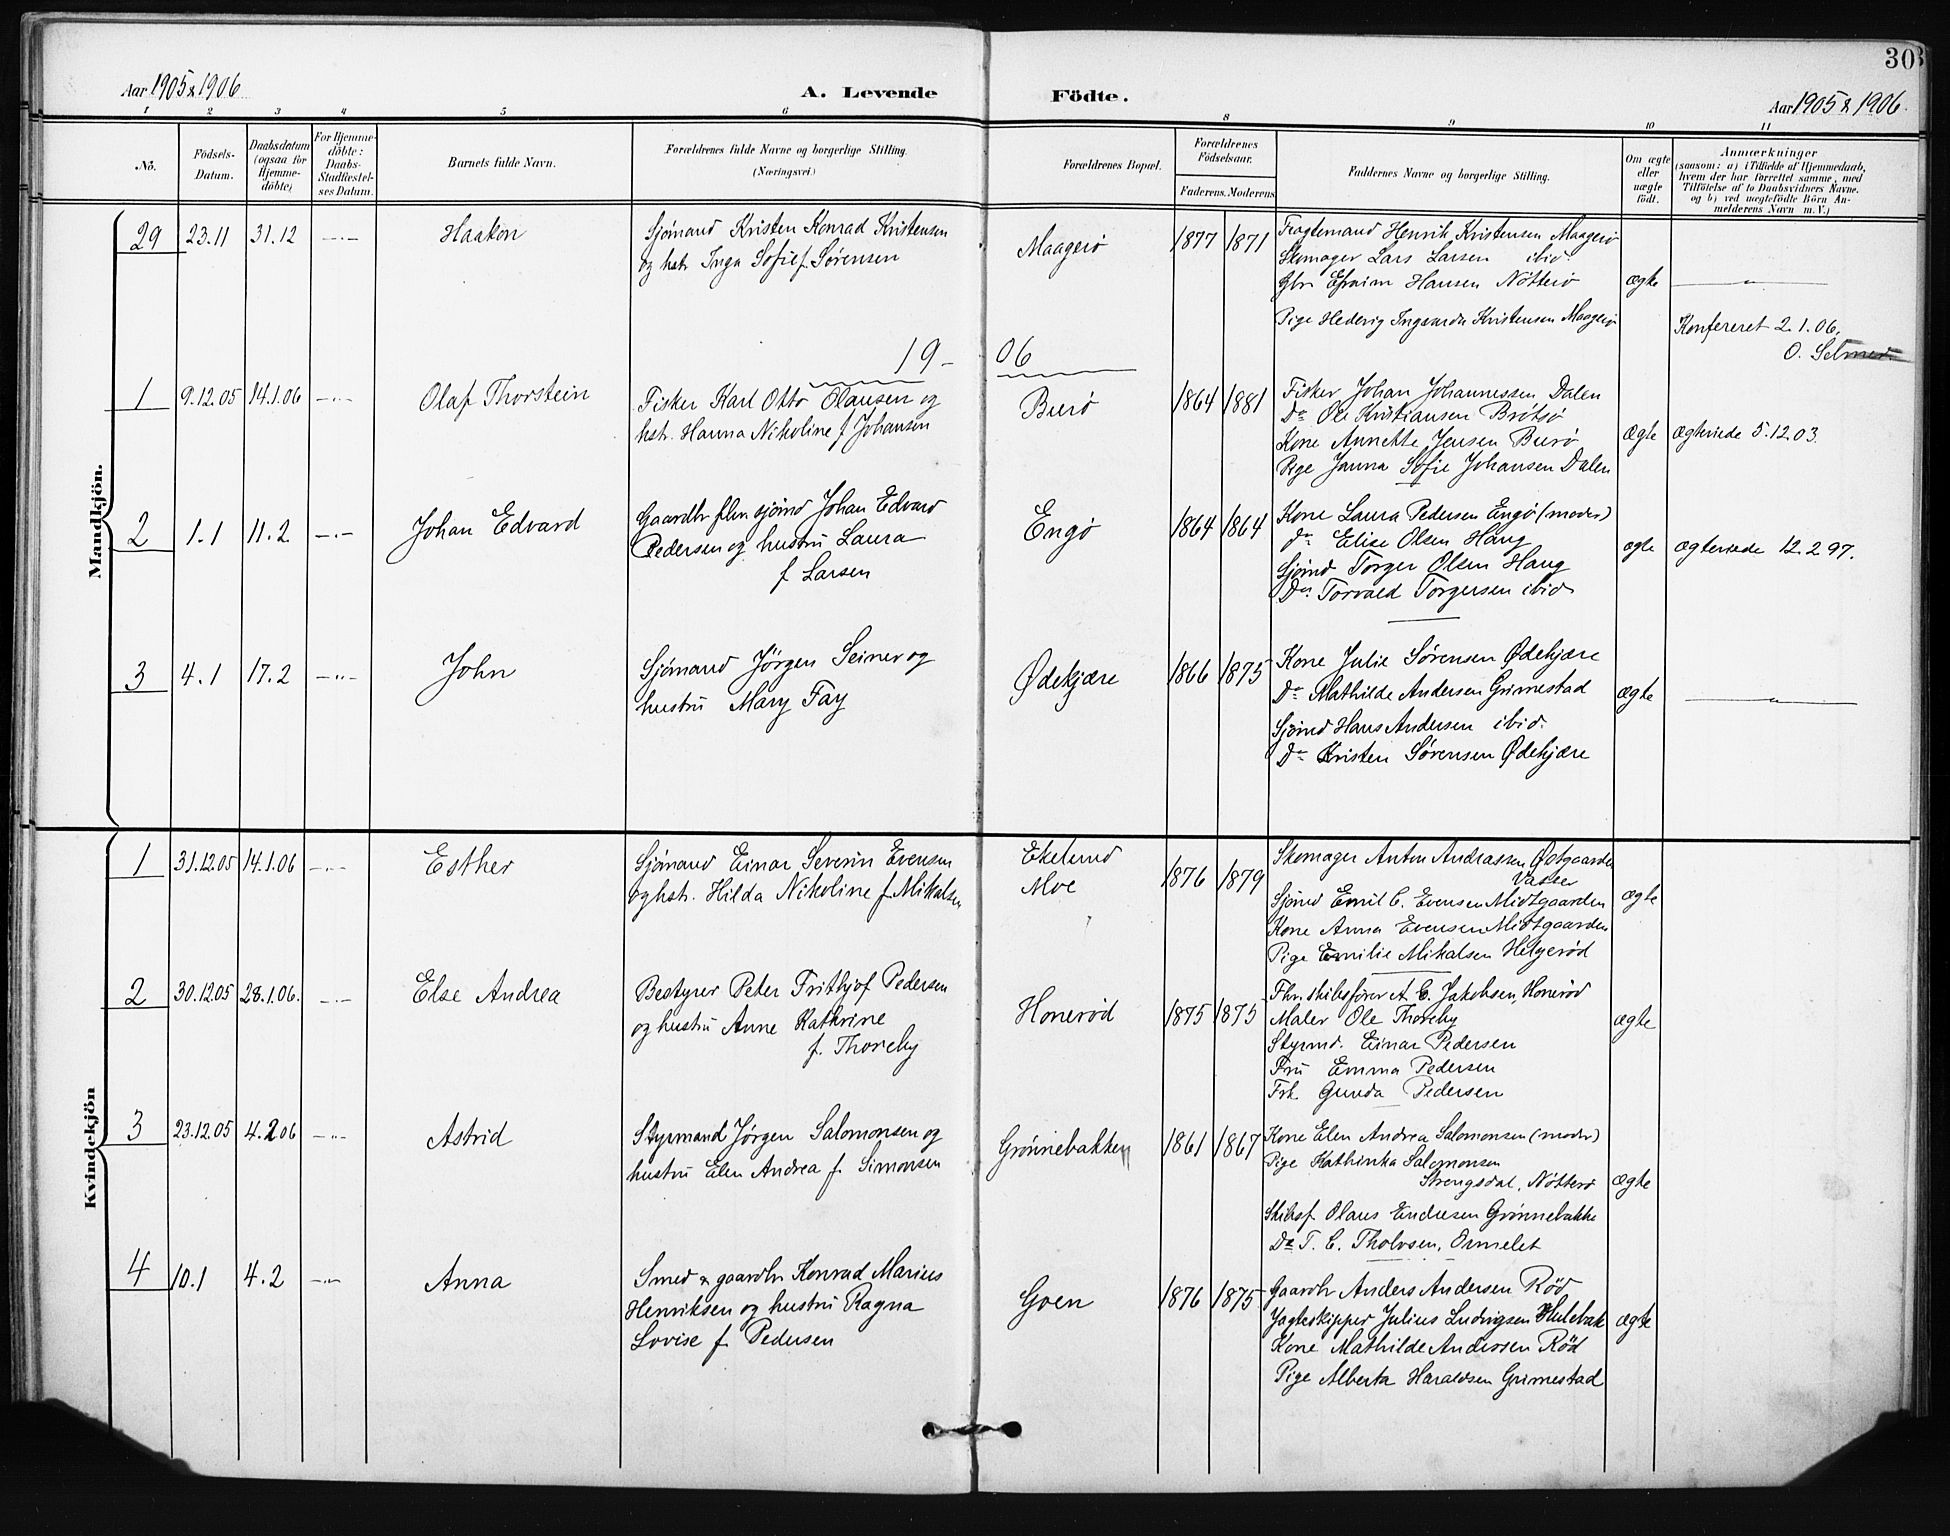 30
Aar 1905 & 1906
A. Levende Födte.
Aar 1905 & 1906.
1 2 3 4 5 6 8 9 10 11
No.
Födsels-Datum.
Daabsdatum (ogsaa for Hjemme-döbte)
For Hjemme-döbte: Daabs-Stadfæstel-ses Datum.
Barnets fulde Navn.
Forældrenes fulde Navne og borgerlige Stilling. (Næringsvei.)
Forældrenes Bopæl.
Forældrenes Födselsaar.
Faderens. Moderens
Faddernes Navne og borgerlige Stilling.
Om ægte eller uægte födt.
Anmærkninger
(saasom: a) i Tilfælde af Hjemmedaab,
hvem der har forrettet samme, med
Tilföielse af to Daabsvidners Navne.
og b) ved uægtefödte Börn An-
melderens Navn m. V.)
Mandkjön.
29 23.11 31.12 —"— Haakon
Sjömand Kristen Konrad Kristensen
og hstr. Inga Sofie f. Sørensen
Maagerö 1877 1871
Fragtemand Henrik Kristensen Maagerö
Skomager Lars Larsen ibid.
Gbr Efraim Hansen Nötterö
Pige Hedevig Ingvarda Kristensen Maagerö
ægte —"—
Konfereret 2.1.06.
O. Selmer
19 — 06
1 9.12.05 14.1.06 —"— Olaf Thorstein
Fisker Karl Otto Olausen og
hstr. Hanna Nikoline f Johansen
Burö 1864 1881
Fisker Johan Johannessen Dalen
Do Ole Kristiansen Brötsö
Kone Annette Jensen Burö
Pige Janna Sofie Johansen Dalen
Ægte Ægteviede 5.12.03.
2 1.1 11.2 —"— Johan Edvard
Gaardbr fhv. sjömd Johan Edvard
Pedersen og hustru Laura
f Larsen
Engö 1864 1864
Kone Laura Pedersen Engö (moder)
Do Elise Olsen Haug
Sjömd Torger Olsen Haug
Do Torvald Torgersen ibid
ægte ægteviede 12.2 97.
3 4.1 17.2 —"— John
Sjömand Jörgen Seiner og
hustru Mary Fay
Ødekjære 1866 1875
Kone Julie Sørensen Ødekjære
Do Mathilde Andersen Grimestad
Sjömd Hans Andersen ibid.
Do Kristen Sørensen Ødekjære
ægte —"—
Kvindekjön
1 31.12.05 14.1.06 —"— Esther
Sjömand Einar Severin Evensen
og hstr. Hilda Nikoline f Mikalsen
Ekelund
Moe
1876 1879
Skomager Anton Andrassen Østgaarden
Vasser
Sjömd Emil C. Evensen Midtgaarden
Kone Anna Evensen Midtgaarden
Pige Emilie Mikalsen Helgerød
ægte
2 30.12.05 28.1.06. —"— Else Andrea
Bestyrer Peter Frithjof Pedersen
og hustru Anne Kathrine
f. Thoreby
Honerød 1875 1875
Fhv. skibsfører A. C. Jakobsen, Honerød
Maler Ole Thoreby
Styrmd. Einar Pedersen
Fru Emma Pedersen
Frk. Gunda Pedersen
ægte
3 23.12.05 4.2 06 —"— Astrid
Styrmand Jørgen Salomonsen og
hustru Elen Andrea f. Simonsen
Grønnebakken 1861 1867
Kone Elen Andrea Salomonsen (moder)
Pige Kathinka Salomonsen
Strengsdal, Nötterö
Skibsf. Olaus Endresen Grønnebakke
Do T. C. Tholvsen, Ormelet
ægte
4 10.1 4.2 —"— Anna
Smed & gaardbr Konrad Marius
Henriksen og hustru Ragna
Lovise f. Pedersen
Goen 1876 1875
Gaardbr Anders Andersen Rød
Jagtskipper Julius Ludvigsen Hulebak
Kone Mathilde Andersen Rød
Pige Alberta Haraldsen Grimestad
ægte